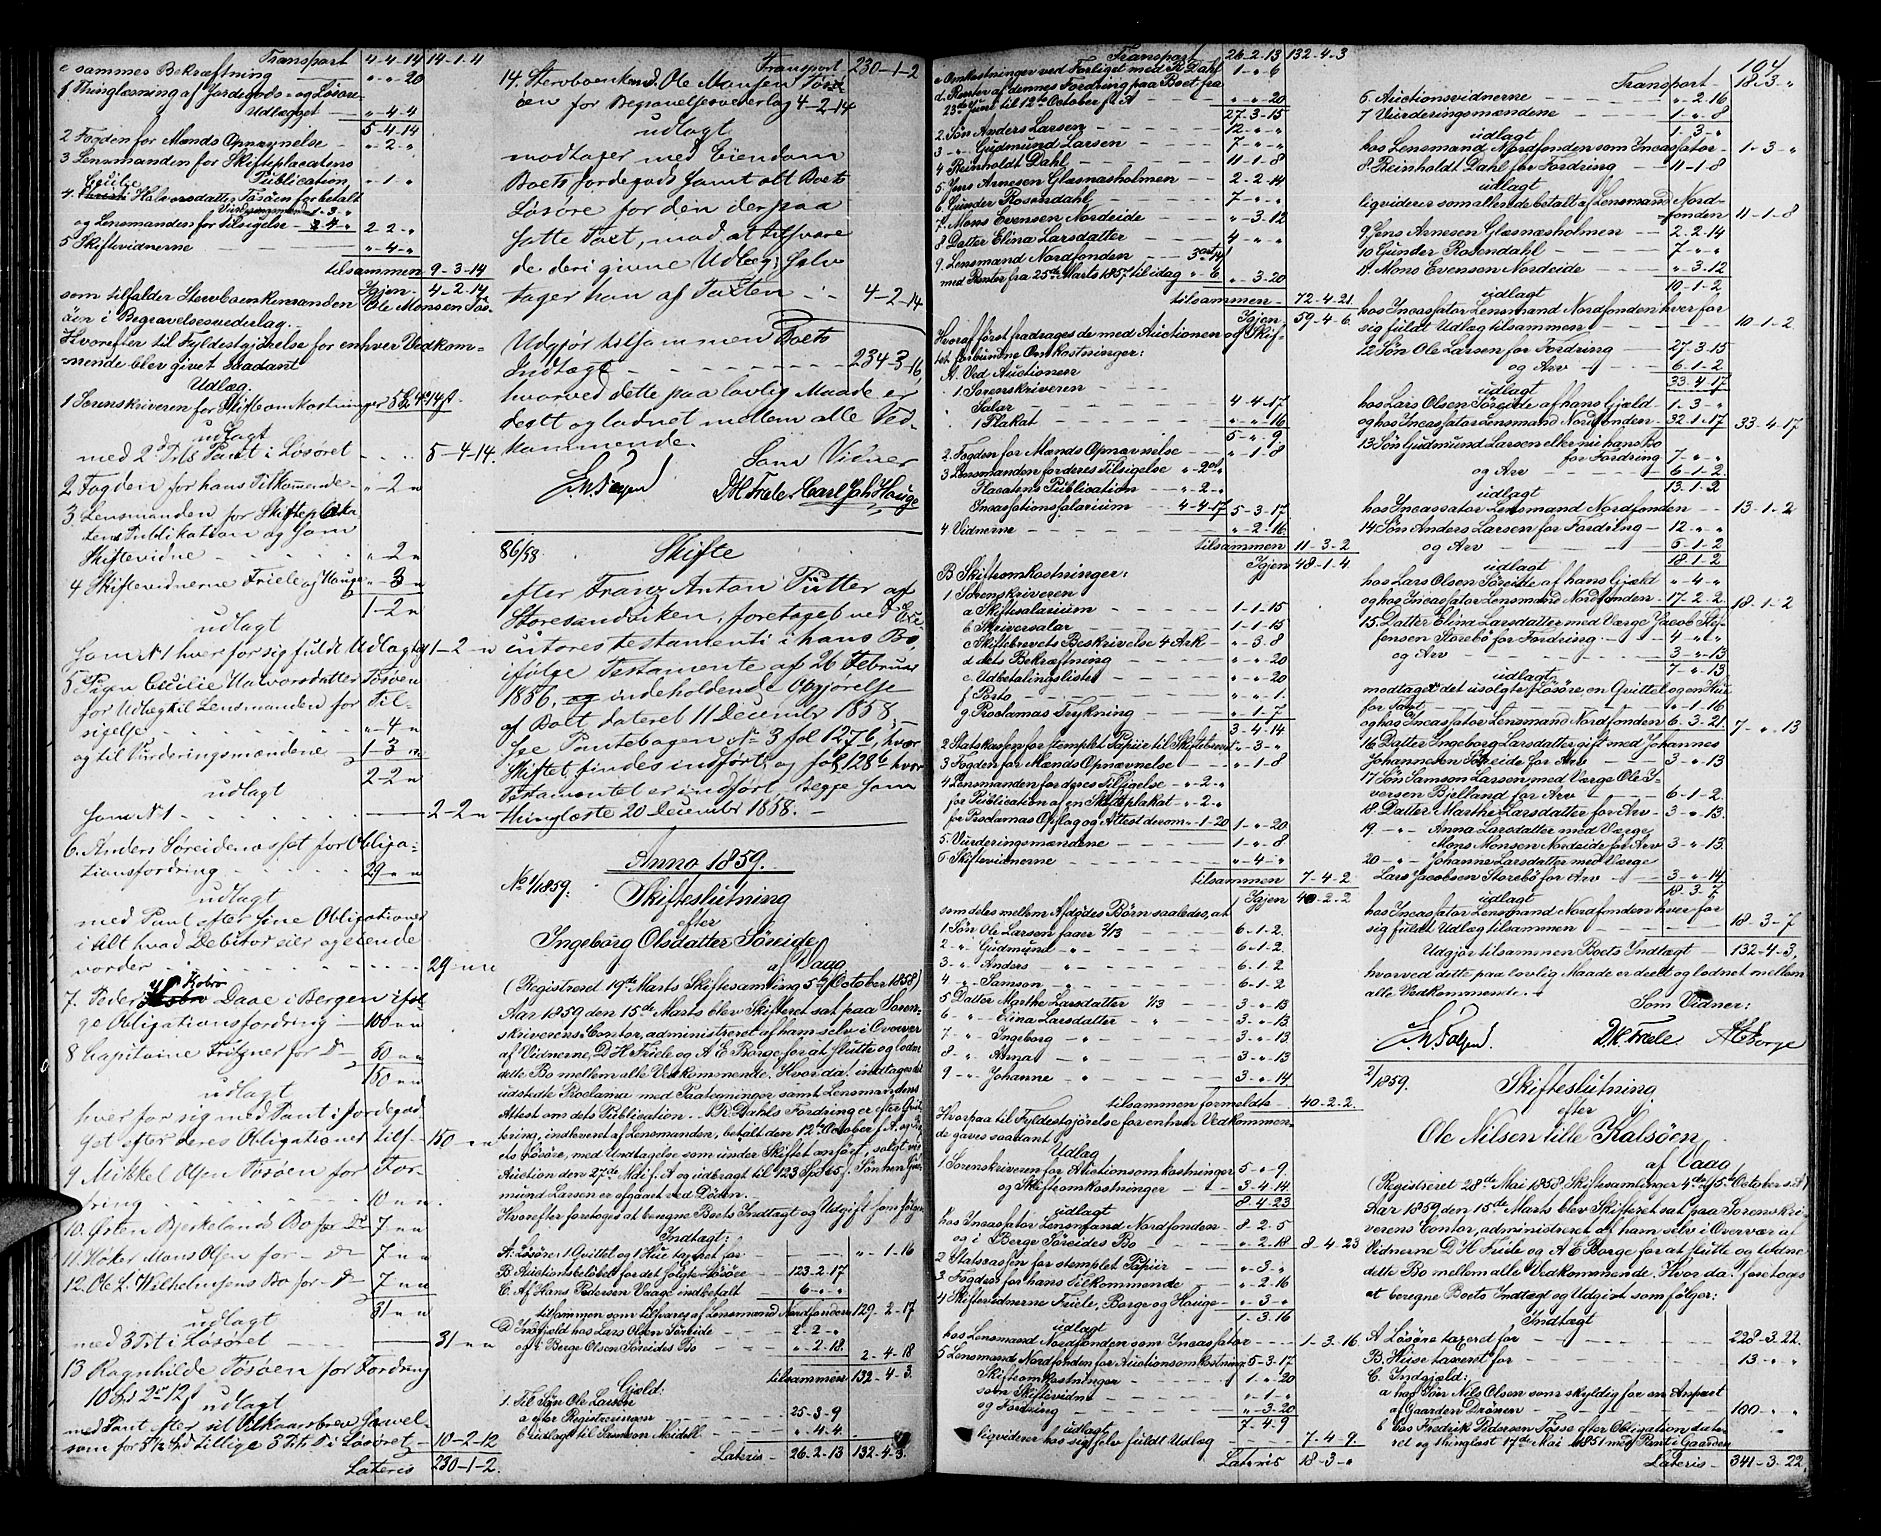 Transport 4-4-14 14-1-4
e sammes Bekræftning " " 20
f Thinglæsning af Jordegods- og Løsøre-
Udlægget " 4-4
5-4-14
2 Fogden for Mænds Opnævnelse - " 2 "
3 Lensmanden for Skifteplacatens
Publication " 1 "
Cecilie
4. Halvorsdatter Tösöen for betalt
Vurderingsmænd 1-3-"
og Lensmanden for Tilsigelse - 2-4-" 2-2-"
5 Skiftevidnerne " 4 "
tilsammen 9-3-14
Igjen 4-2-14
som tilfalder Stervboenkemanden Ole Monsen Tös-
öen i Begravelsesvederlag.
Hvorefter til Fyldestgjörelse for enhver Vedkom-
mende blev givet saadant
Udlæg.
1 Sorenskriveren for Skifteomkostninger 5 Spd 4 14 s
udlagt
med 2 den Prts Pant i Løsøret 5-4-14.
2 Fogden for hans Tilkommende - " 2 "
3 Lensmanden for Skifteplaka-
tens Publikation og som
Skiftevidne " 2 "
4 Skiftevidnerne Friele og Hauge " 3 "
1-2 "
udlagt
som N 1 hver for sig fuldt Udlagt 1-2-"
5 Pigen Cecilie Halvorsdatter Tösöen
for Udlæg til Lensmanden for Til-
sigelse " 4 "
og til Vurderingsmændene 1-3 "
2-2 "
udlagt
som N 1 2-2-"
6. Anders Söreidenæsset for Obliga-
tionsfordring 29 " "
udlagt
med Pant efter sine Obligationer
i Alt hvad Debitor eier og eiende
vorder 29 - " "
7. Peder Kobro Daae i Bergen iføl-
ge Obligationsfordring 100 " "
8 Capitaine Fritzner for Do 50 " "
150 " "
udlagt
hver for sig med Pant i Jordegod-
set efter deres Obligationer tils- 150 - " "
9 Mikkel Olsen Tösöen for For-
dring 10 " "
10. Østen Bjerkelands Bo for Do 7 " "
11. Høker Mons Olsen for - Do 7 " "
12. Ole L. Wilhelmsens Bo for - Do 7 " "
31 " "
udlagt
med 3 Prt i Løsøret 31 - " "
13 Ragnhilde Tösöen for Fordring
10 Spd 2 12 s udlagt
med Pant efter sit Vilkaarsbrev saavel-
som for tillige 3 Prt i Løsøret 10-2-12
Lateris 230-1-2.
Transport 230-1-2
14. Stervboenkemd. Ole Monsen Tös-
öen for Begravelsesvederlag 4-2-14
udlagt
modtager med Eiendom
Boets Jordegods samt alt Boets
Løsøre for den derpaa
satte Taxt, mod at tilsvare
de deri givne Udlæg; selv
tager han af Taxten 4-2-14
Udgjør tilsammen Boets
Indtægt 234-3-16,
hvorved dette paa lovlig Maade er
deelt og lodnet mellem alle Ved-
kommende.
Som Vidner
D H Friele. Carl Joh Hauge
86/58 Skifte
efter Franz Anton Pütter af
Storesandviken, foretaget ved Exe-
cutores testamenti i hans Bo,
ifølge Testamente af 26 Februar
1856, og indeholdende Opgjørelse
af Boet, dateret 11 December 1858,
see Pantebogen No 3 fol 127 b, hvor
Skiftet findes indført, og fol 128 b hvor
Testamentet er indført, begge som
thinglæste 20 December 1858.
Anno 1859.
No 1/1859. Skifteslutning
efter
Ingeborg Olsdatter Söreide
af Vaag
(Registreret 19de Marts Skiftesamling 5te October 1858)
Aar 1859 den 15de Marts blev Skifteret sat paa Soren-
skriverens Contor, administreret af ham selv i Overvær
af Vidnerne, D H Friele og A E Borge for at slutte og lodne
dette Bo mellem alle Vedkommende. Hvorda: indtages det
udstedte Proclama med Paategninger samt Lensmandens
Attest om dets Publication. - R Dahls Fordring er efter Qvit-
tering, indleveret af Lensmanden, betalt den 12te October f. A. og
ets Løsøre, med Undtagelse som under Skiftet anført, solgt ved
Auction den 27de Mai f. A og udbragt til 123 Spd 65 s. Sönnen Gud-
mund Larsen er afgaaet ved Døden.
Hvorefter foretoges at beregne Boets Indtægt og Udgift som følger:
Indtægt:
A. Løsøre 1 Qvittet og 1 Hue taxeret for " - 1 - 16
B Auctionsbeløbet for det solgte Løsøre 123-2-17
C. Af Hans Pedersen Vaage indbetalt 6-"-"
tilsammen som tilsvares af Lensmand Nordfonden 129-2-17
D Indgjeld hos Lars Olsen Söreide 2-2-"
og i Berge Olsen Söreides Bo " 2-18
2-4-18
tilsammen 132-4-3.
Gjeld:
1. Til Sön Ole Larsen
a efter Registreringen 25-3-9
b udlagt til Samson Meidell " 4-4.
Lateris 26-2-13 132-4-3.
Transport 26-2-13 132-4-3
c Omkostninger ved Forliget med R Dahl 1-"-6
d. Renter af dennes Fordring paa Boet fra
23de Juni til 12te October f A " " 20
27-3-15
2 Sön Anders Larsen 12 " "
3 " Gudmund Larsen 7 " "
4 Reinholdt Dahl 11-1-8
5 Jens Arnesen Glæsnæsholmen 2-2-14
6 Gunder Rosendahl 7 " "
7. Mons Evensen Nordeide " 3-12
8 Datter Elina Larsdatter 4 " "
9. Lensmand Nordfonden
med Renter fra 25de Marts 1857 til idag " 6 " 3-20
tilsammen 72-4-21.
Igjen 59-4-6.
Heraf først fradrages de med Auctionen og Skif-
tet forbundne Omkostninger:
A. Ved Auctionen
1 Sorenskriveren
Salar 4-4-17
1 Plakat " " 16
5 - " 9
2. Fogden for Mænds Opnævnelse " 1-8
3 Lensmanden for deres Tilsigelse " 2 "
Placatens Publication " 2 "
Incassationssalarium 4-4-17 5-3-17
4 Vidnerne " 2-16
tilsammen 11-3-2
Igjen 48-1-4.
B Skifteomkostninger:
1 Sorenskriveren
a Skiftesalarium 1-1-15
b Skriversalar 1-1-15
c Skiftebrevets Beskrivelse 4 Ark " 3-8
d dets Bekræftning " " 20
e Udbetalingslisten " " 20
f. Porto " " 1
g. Proclamas Trykning " 1-7
3-4-14
2 Statskassen for stemplet Papiir til Skiftebrevet " 3 "
3 Fogden for Mænds Opnævnelse " 1-8
4 Lensmanden for deres Tilsigelse " 2 "
for Publication af en Skifteplakat " 2 "
for Proclamas Opslag og Attest derom " 1-20 1-"-20
5 Vurderingsmændene 1-"-8
6 Skiftevidnerne " 4 "
tilsammen 7-4-2
Igjen 40-2-2
som deles mellem Afdødes Børn saaledes, at
1 Sön Ole Larsen faaer 2/13 6-1-2.
2 " Gudmund " 6-1-2.
3 " Anders " 6-1-2
4 " Samson " 6-1-2
5 Datter Marthe Larsdatter 1/13 3-"-13
6 " Elina Larsdatter " 3-"-13.
7 " Ingeborg " 3-"-13
8 " Anna " 3-"-13
9 " Johanne " 3-"-14
tilsammen formeldte 40-2-2.
Hvorpaa til Fyldestgjörelse for enhver Vedkommen-
de gaves saadant
Udlæg
1 Sorenskriveren for Auctionsomkostninger 5-"-9
og Skifteomkostninger 3-4-14
8-4-23
udlagt
hos Incassator Lensmand Nordfonden 8-2-5
og i Berge Söreides Bo " 2-18 8-4-23
2 Statskassen for stemplet Papiir " 3 "
3 Fogden for hans Tilkommende " 2-16
4 Skiftevidnerne Friele, Borge og Hauge " 3 "
1-3-16
udlagt
hos Lensmand Nordfonden som Incassator 1-3-16
5 Lensmand Nordfonden for Auctionsomkostning 5-3-17
Skifteomkostninger 1-"-20
som Skiftevidne " 1 "
og Fordring " 3-20
7-4-9
udlagt
liqviderer hos sig selv fuldt Udlæg 7-4-9.
Lateris 18-3-"
104
Transport 18-3-"
6 Auctionsvidnerne " 2-16
7 Vurderingsmændene 1-"-8
1-3-"
udlagt
hos Lensmand Nordfonden som Incassator 1-3-"
8. Reinholdt Dahl for Fordring 11-1-8
udlagt
liqvideres som allerede betalt af Lensmand Nord-
fonden 11-1-8
9 Jens Arnesen Glæsnæsholmen 2-2-14
10 Gunder Rosendahl 7 " "
11 Mons Evensen Nordeide " 3-12
10-1-2
udlagt
hos Incassator Lensmand Nordfonden hver for
sig fuldt Udlæg tilsammen 10-1-2.
12 Sön Ole Larsen for Fordring 27-3-15
og Arv 6-1-2
33-4-17
udlagt
hos Lars Olsen Söreide af hans Gjæld 1-3-"
og hos Incassator Lensmand Nordfonden 32-1-17 33-4-17
13 Sön Gudmund Larsen eller nu hans Bo
for Fordring 7 " "
og Arv 6-1-2
13-1-2
udlagt
hos Incassator Lensmand Nordfonden 13-1-2
14 Sön Anders Larsen for Fordring 12 " "
og Arv 6-1-2
18-1-2
udlagt
hos Lars Olsen Söreide af hans Gjæld " 4 "
og hos Incassator Lensmand Nordfonden 17-2-2 18-1-2
15. Datter Elina Larsdatter med Værge Jacob Stef-
fensen Storebö for Fordring 4 " "
og Arv 3-"-13
7-"-13
udlagt
modtager det usolgte Løsøre, en Qvittel og en Hue
for Taxt " 1-16
og hos Incassator Lensmand Nordfonden 6-3-21 7-"-13
16 Datter Ingeborg Larsdatter gift med Johannes
Johannesen Söreide for Arv 3-"-13
17 Sön Samson Larsen med Værge Ole I-
versen Bjelland for Arv 6-1-2
18 Datter Marthe Larsdatter for Arv 3-"-13.
19 " Anna Larsdatter med Værge
Mons Monsen Nordeide for Arv 3-"-13
20 " Johanne Larsdatter med Værge
Lars Jacobsen Storebö for Arv 3-"-14
18-3-7
udlagt
hos Incassator Lensmand Nordfonden hver for
sig fuldt Udlæg tilsammen 18-3-7
Udgjør tilsammen Boets Indtægt 132-4-3,
hvorved dette paa lovlig Maade er deelt og lodnet mellem
alle Vedkommende.
Som Vidner:
D.H. Friele A E Borge
2/1859. Skifteslutning
efter
Ole Nilsen lille Kalsöen
af Vaag
(Registreret 28de Mai 1858 Skiftesamlinger 4de og 5te October s A)
Aar 1859 den 15de Marts blev Skifteret sat paa Sorenskri-
verens Contor, administreret af ham selv i Overvær af
Vidnerne D H Friele og A E Borge for at slutte og lodne
dette Bo mellem alle Vedkommende. Hvorda: foretoges
at beregne Boets Indtægt og Udgift som følger:
Indtægt
A Løsøre taxeret for 228-3-22.
B. Huse taxeret for 13-"-"
C. Indgjeld:
a hos Sön Nils Olsen som skyldig for en Anpart
af Gaarden Drösen 100-"-"
b hos Fredrik Pedersen Tösse efter Obligation date-
ret og thinglæst 17de Mai 1851 med Pant i Gaarden
Lateris 341-3-22